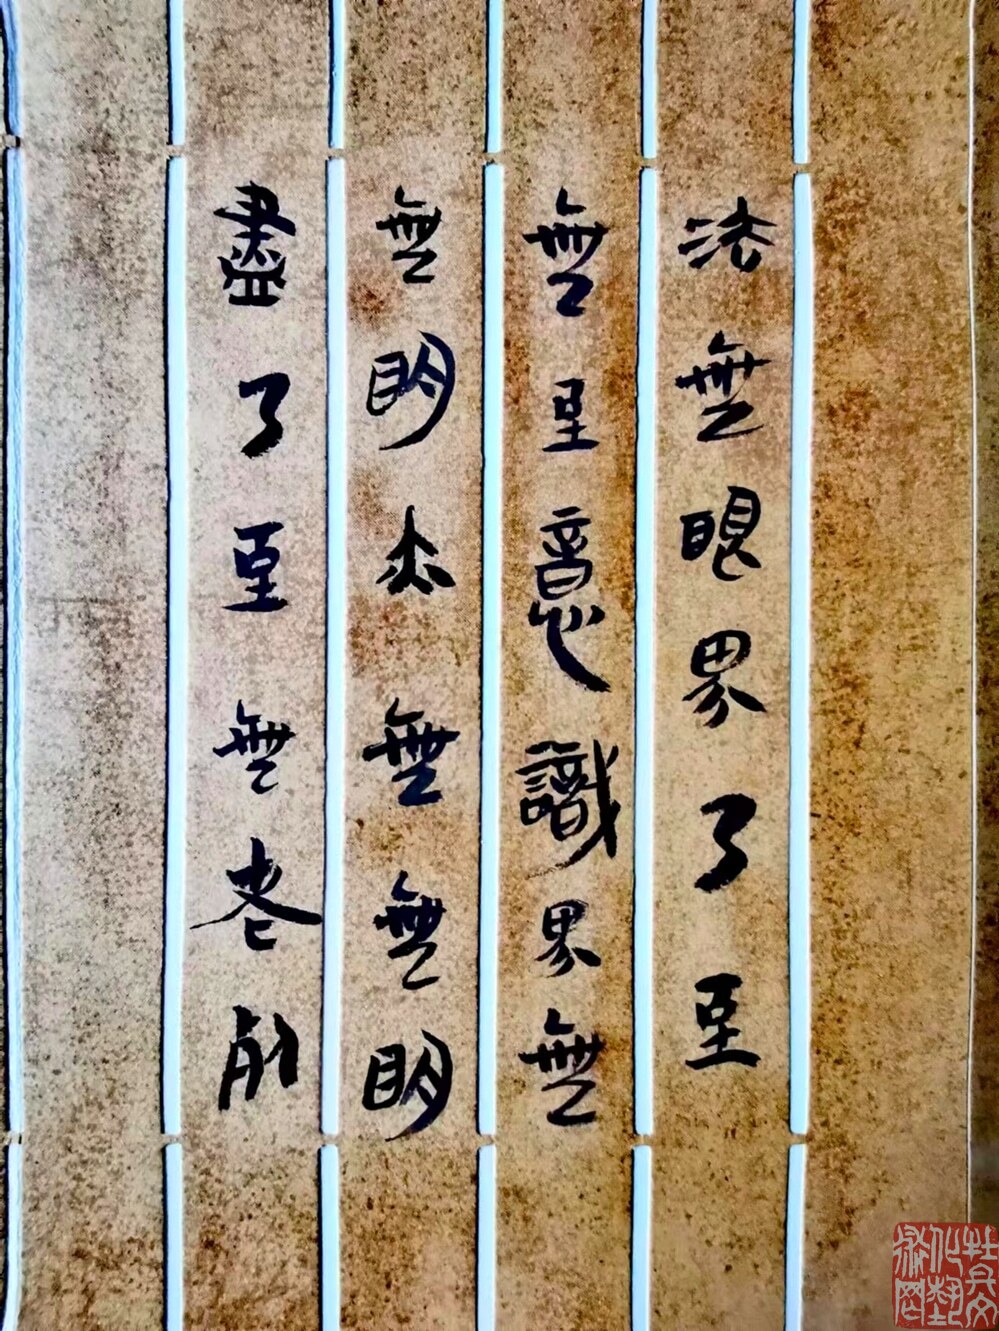 法無眼界乃至
無意識界無
無明亦無無明
盡乃至無老死